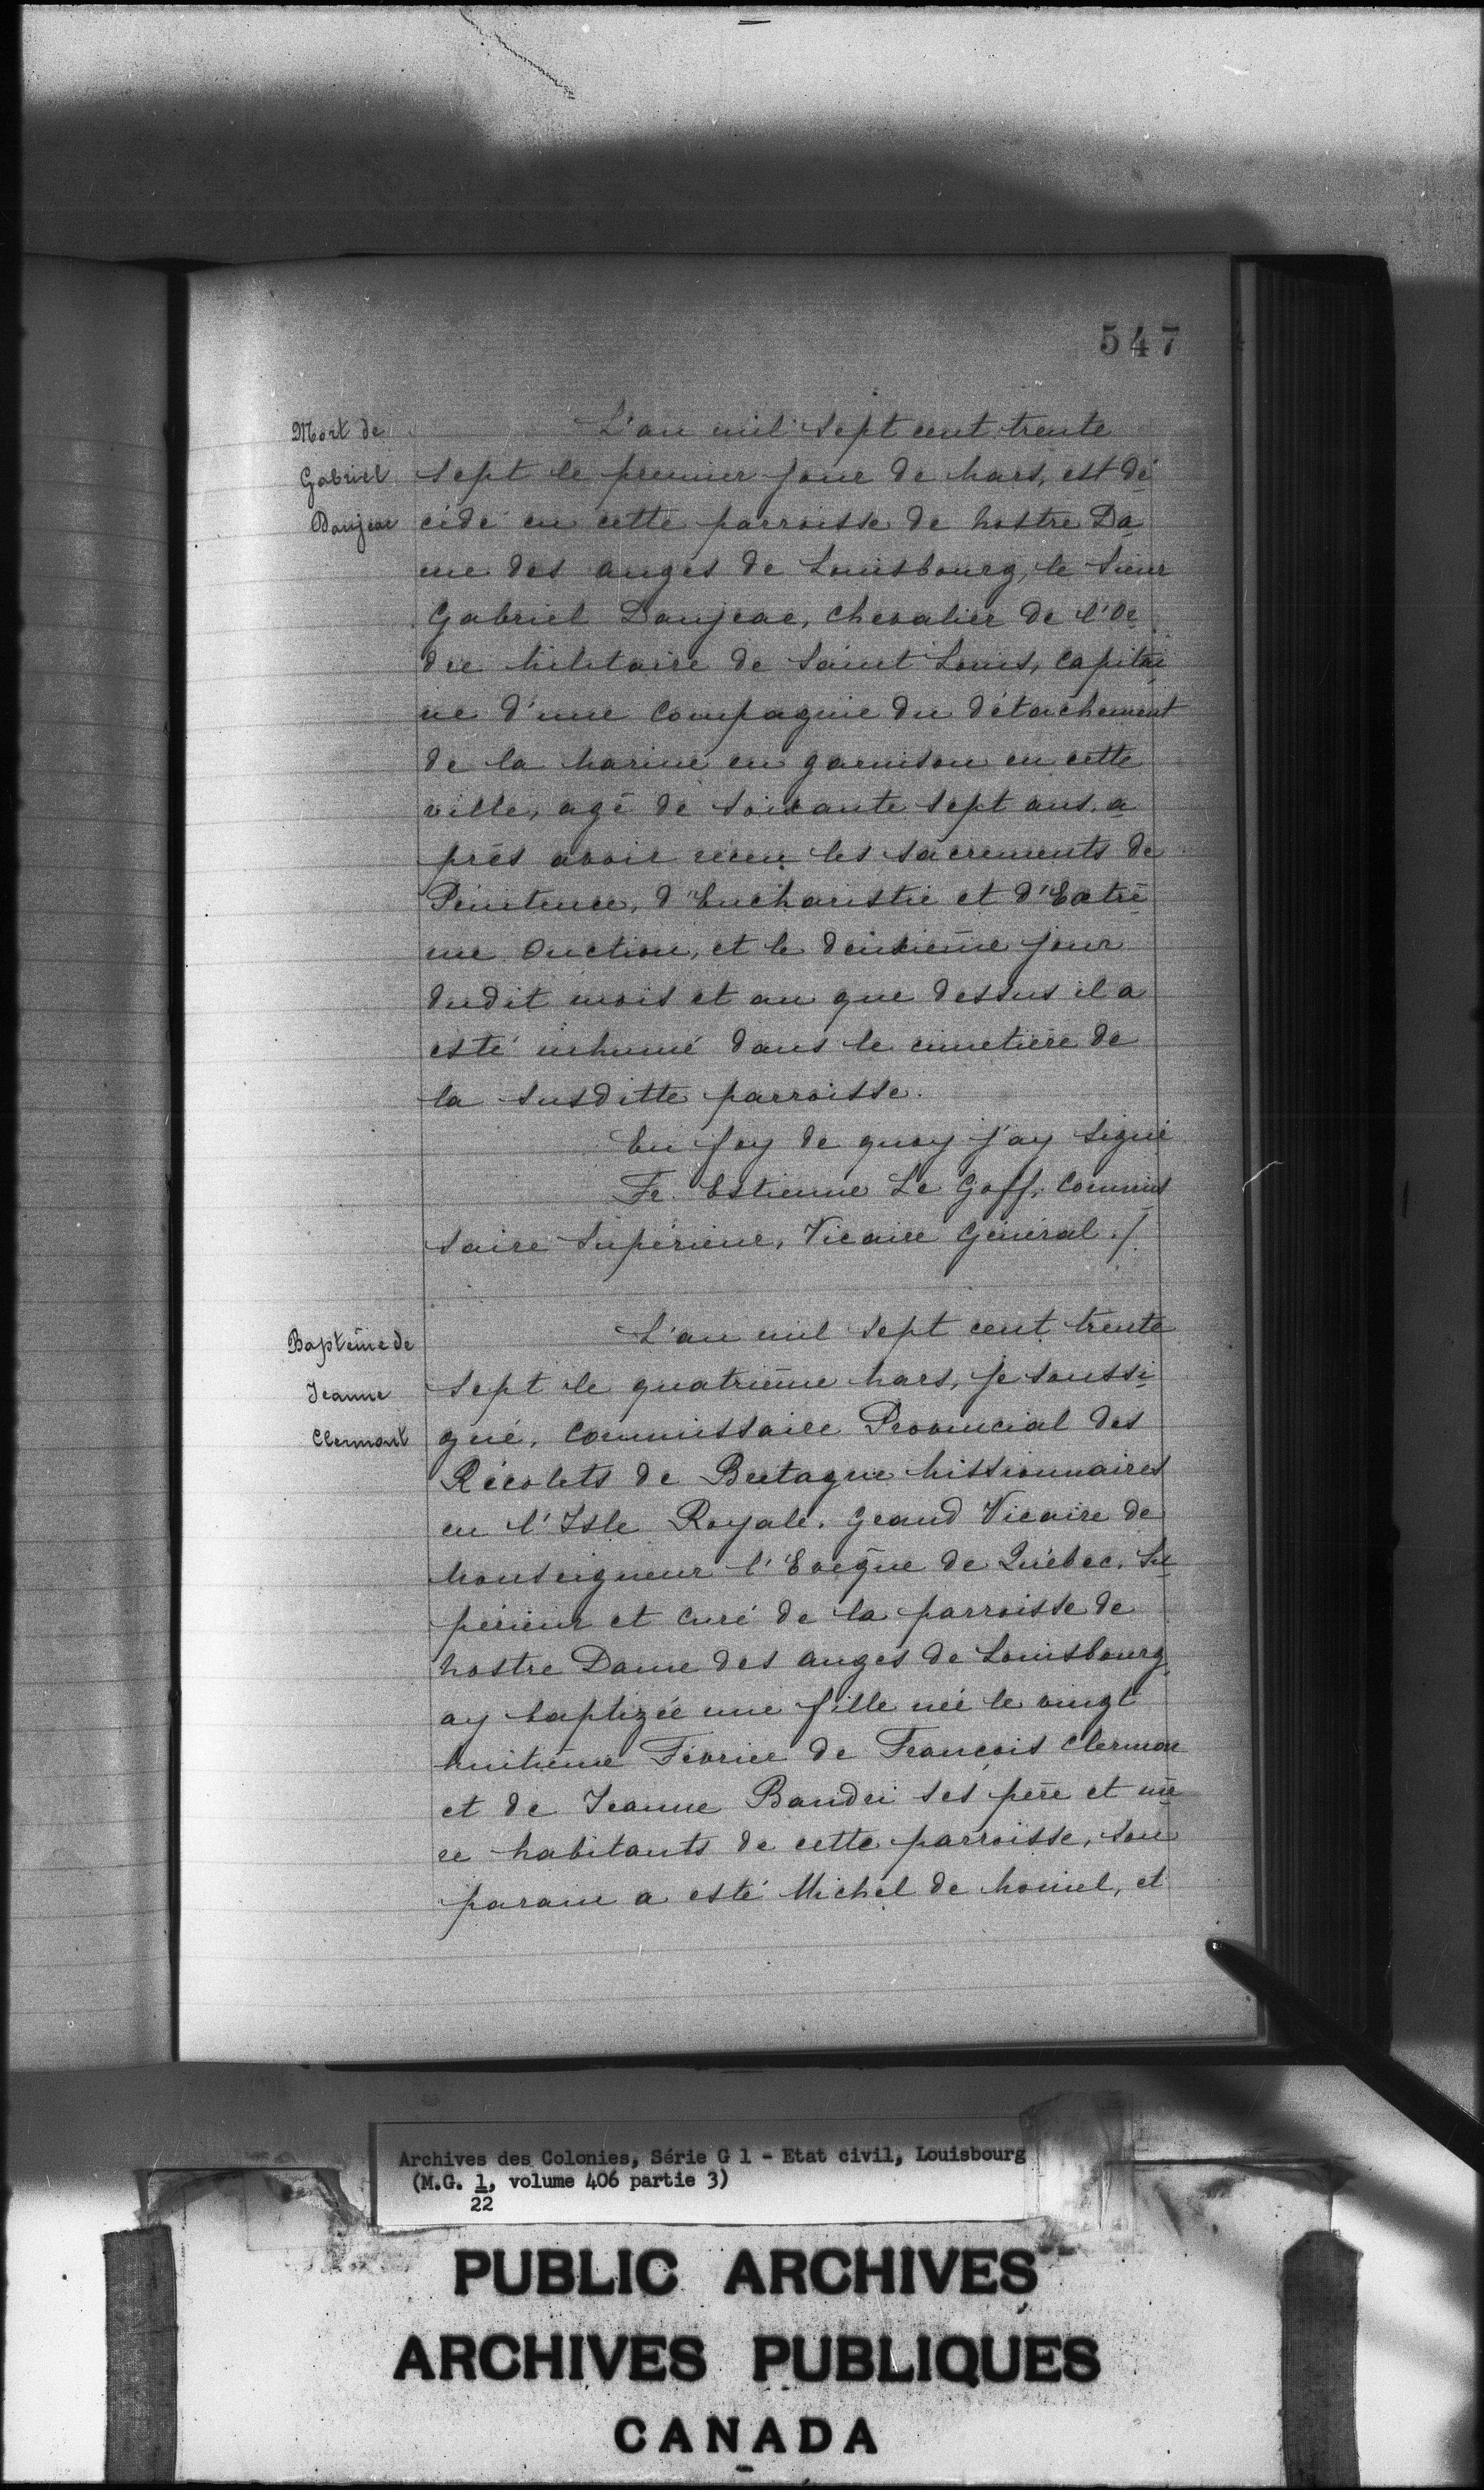 547
Mort de
Gabriel
Danjeac
L'an mil sept cent trente
sept le premier jour de Mars, est dé
cédé en cette parroisse de Nostre Da
me des anges de Louisbourg, le Sieur
Gabriel Danjeac, Chevalier de l'Or
dre Militaire de Saint Louis, Capitai
ne d'une Compagnie du détachement
de la Marine en garnison en cette
ville, agé de soixante sept ans, a
près avoir receu les sacrements de
Pénitence, d'Eucharistie et d'Extrê
me Onction, et le deuxième jour
dudit mois et an que dessus il a
esté inhumé dans le cimetière de
la susditte parroisse.
En foy de quoy j'ay signé
Fr. Estienne Le Goff, Commis
saire Supérieur, Vicaire Général ./.
Baptême de
Jeanne
Clermont
L'an mil sept cent trente
sept le quatrième Mars, je soussi
gné, Commissaire Provincial des
Récolets de Bretagne Missionnaires
en l'Isle Royale, grand Vicaire de
Monseigneur l'Evêque de Québec, Su
périeur et Curé de la parroisse de
Nostre Dame des anges de Louisbourg
ay baptizée une fille née le vingt
huitième Février de François Clermon
et de Jeanne Baudri ses père et mè
re habitants de cette parroisse, son
parain a esté Michel de
et
Archives des Colonies, Série G 1 - Etat civil, Louisbourg
(M.G. 1, volume 406 partie 3)
22
PUBLIC ARCHIVES
ARCHIVES PUBLIQUES
CANADA